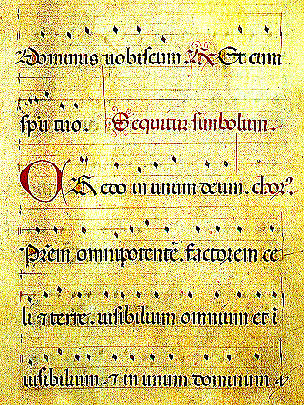 Dominus nobiscum. R Et cum
spũ tuo. Sequitur simbolum.
CRedo in unum deum. chor⁹.
Prẽm omnipotentẽ. factorem ce
li ⁊ terre. uisibilium omnium et i
uisibilium. ⁊ in unum dominum